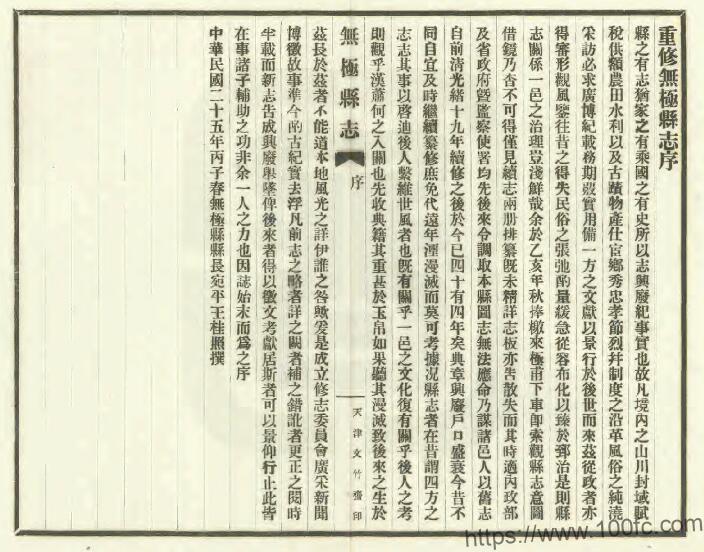 重修無極縣志序
縣之有志猶家之有乘國之有史所以志興廢紀事實也故凡境內之山川封域賦
稅供額農田水利以及古蹟物產仕宦鄉秀忠孝節烈幷制度之沿革風俗之純澆
采訪必求廣博紀載務期覈實用備一方之文獻以景行於後世而來茲從政者亦
得審形觀風鑒往昔之得失民俗之張弛酌量緩急從容布化以臻於郅治是則縣
志關係一邑之治理豈淺鮮哉余於乙亥年秋捧檄來極甫下車卽索觀縣志意圖
借鏡乃杳不可得僅見續志兩册排纂旣未精詳志板亦告散失而其時適內政部
及省政府曁監察使署均先後來令調取本縣圖志無法應命乃謀諸邑人以舊志
自前淸光緒十九年續修之後於今已四十有四年矣典章興廢戶口盛衰今昔不
同自宜及時繼續纂修庶免代遠年湮漫滅而莫可考據况縣志者在昔謂四方之
志志其事以啓迪後人繫維世風者也旣有關乎一邑之文化復有關乎後人之考
則觀乎漢蕭何之入關也先收典籍其重甚於玉帛如果聽其漫滅致後來之生於
無極縣志 序
天津文竹齋印
茲長於茲者不能道本地風光之詳伊誰之咎歟爰是成立修志委員會廣采新聞
博徵故事準今酌古紀實去浮凡前志之略者詳之闕者補之錯訛者更正之閱時
半載而新志告成興廢舉墜俾後來者得以徵文考獻居斯者可以景仰行止此皆
在事諸子輔助之功非余一人之力也因誌始末而爲之序
中華民國二十五年丙子春無極縣縣長宛平王桂照撰
https://www.100fc.com